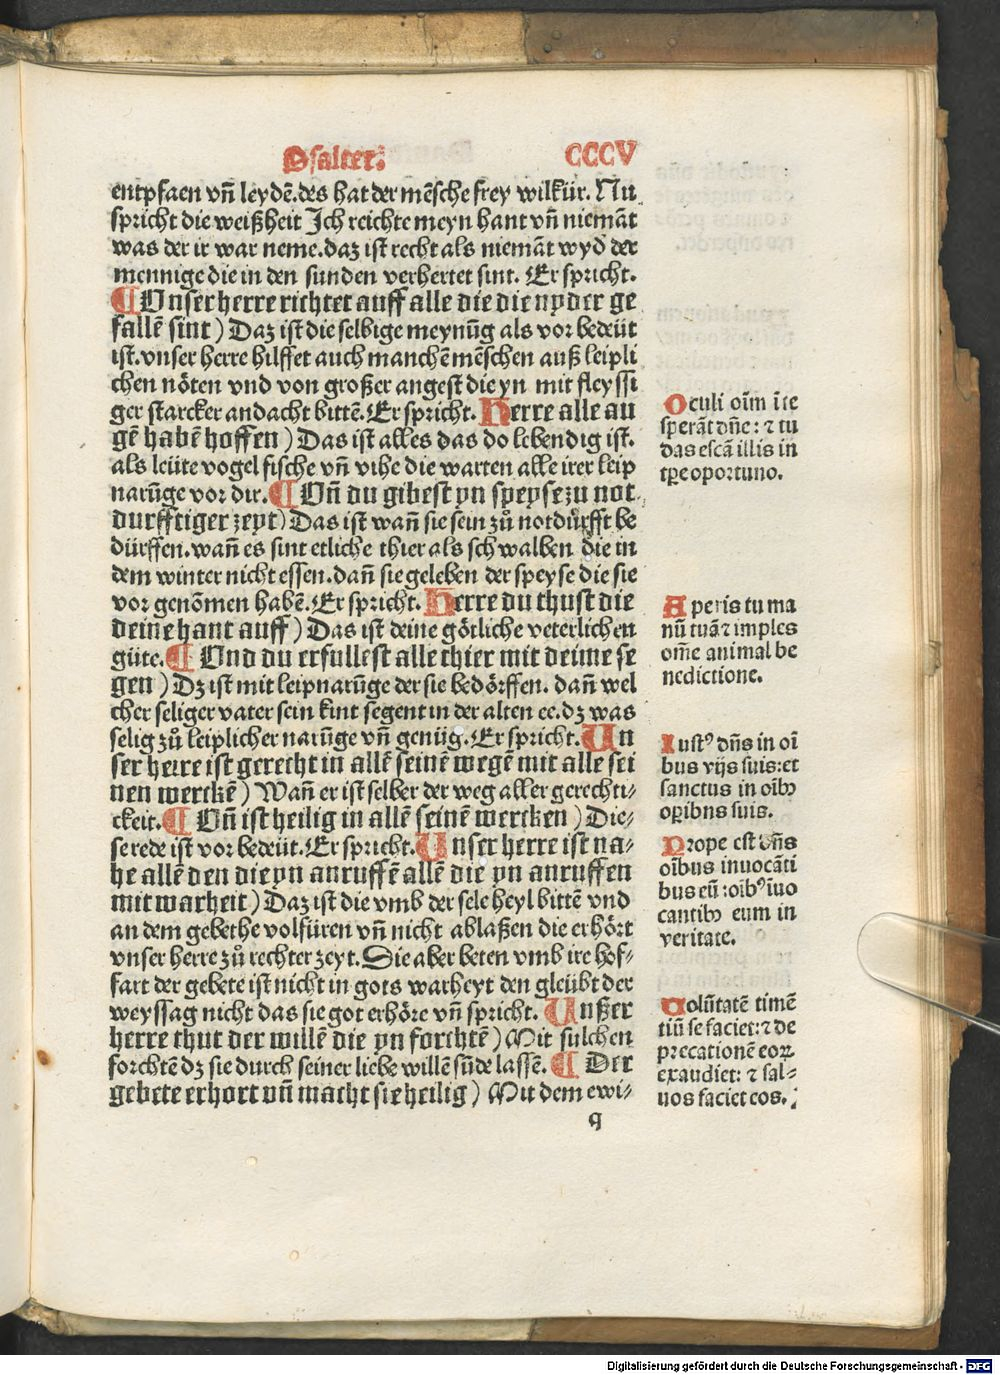 Psalter.
CCCV
entpfaen vñ leydē.des hat der mēsche frey wilkür. Nu
spricht die weißheit Ich reichte meyn hant vñ niemāt
was der ir war neme.daz ist recht als niemāt wyd der
mennige die in den sunden verhertet sint. Er spricht.
¶ Unser herre richtet auff alle die die nyder ge
fallē sint) Daz ist die selbige meynūg als vor bedeüt
ist.vnser herre hilffet auch manchē mēschen auß leipli
chen nöten vnd von großer angest die yn mit fleyssi
ger starcker andacht bittē. Er spricht. Herre alle au
gē habē hoffen) Das ist alles das do lebendig ist.
als leüte vogel fische vñ vihe die warten alle irer leip
narūge vor dir. ¶ Oñ du gibest yn speyse zu not
durfftiger zeyt) Das ist wañ sie sein zů notdürfft be
dürffen.wañ es sint etliche thier als schwalben die in
dem winter nicht essen.dañ sie geleben der speyse die sie
vor genōmen habē. Er spricht. Herre du thust die
deine hant auff) Das ist deine götliche veterlichen
güte. ¶ Ond du erfullest alle thier mit deime se
gen) Dz ist mit leipnarūge der sie bedörffen. dañ wel
cher seliger vater sein kint segent in der alten ee.dz was
selig zů leiplicher narūge vñ genüg. Er spricht. Un
ser herre ist gerecht in allē seinē wegē mit alle sei
nen werckē) Wañ er ist selber der weg aller gerechti-
ckeit. ¶ Oñ ist heilig in allē seinē wercken) Die-
se rede ist vor bedeüt. Er spricht. Unser herre ist na-
he allē den die yn anruffē allē die yn anruffen
mit warheit) Daz ist die vmb der sele heyl bittē vnd
an dem gebethe volfüren vñ nicht ablaßen die erhört
vnser herre zů rechter zeyt. Die aber beten vmb ire hof-
fart der gebete ist nicht in gots warheyt den gleübt der
weyssag nicht das sie got erhöre vñ spricht. Unßer
herre thut der willē die yn forchtē) Mit sulchen
forchtē dz sie durch seiner liebe willē sūde lassē. ¶ Der
gebete erhort vñ macht sie heilig) Mit dem ewi-
q
Oculi oīm ī te
sperāt dñe: ⁊ tu
das escā illis in
tpe oportuno.
Aperis tu ma
nū tuā ⁊ imples
omē animal be
nedictione.
Iustꝰ dñs in oī
bus vijs suis: et
sanctus in oībꝫ
opibus suis.
Prope est dñs
oībus inuocāti
bus eū: oībꝰ īuo
cantibꝫ eum in
veritate.
Volūtatē timē
tiū se faciet: ⁊ de
precationē eoꝝ
exaudiet: ⁊ sal-
uos faciet eos.
Digitalisierung gefördert durch die Deutsche Forschungsgemeinschaft - DFG